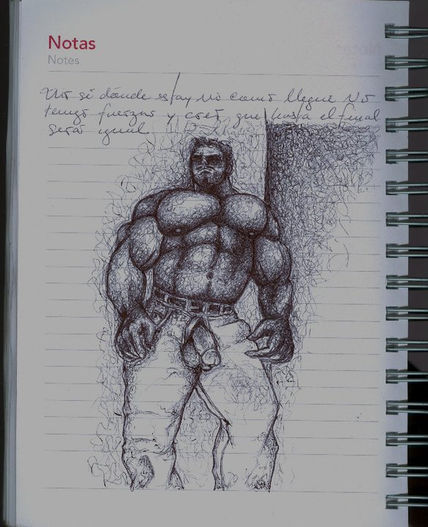 Notas
Notes
No sé dónde estoy ni como llegue No
tengo fuerzas y creo que hasta el final
será igual